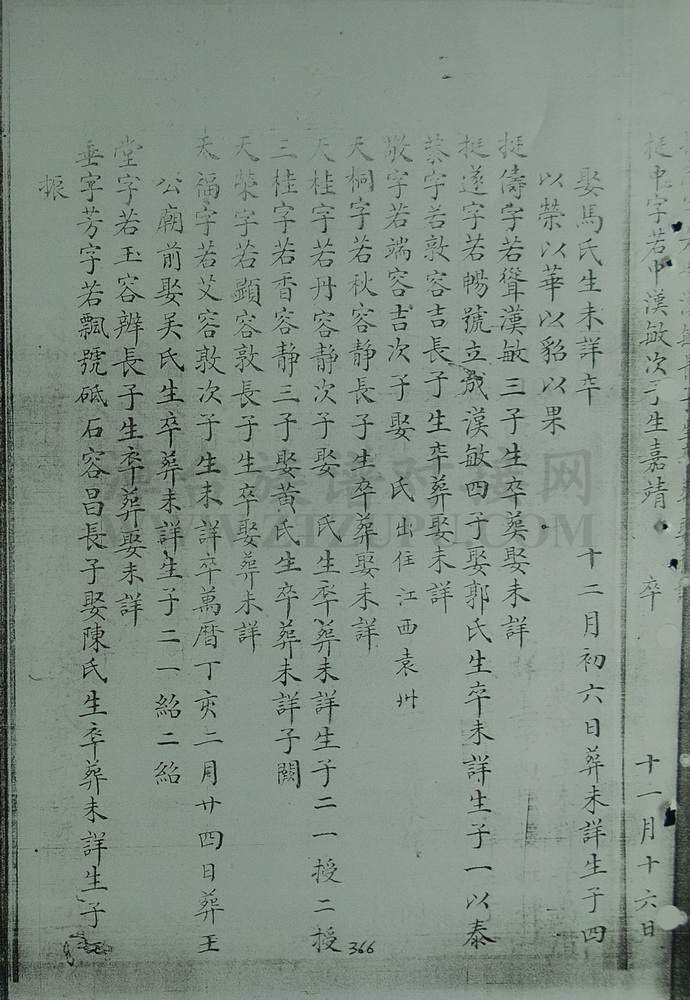 挺中字若中漢敏次子生嘉靖 卒 十一月十六日
娶馬氏生未詳卒 十二月初六日葬未詳生子四
以榮以華以貂以果
挺儔字若聳漢敏三子生卒葬娶未詳
挺遂字若暢號立成漢敏四子娶郭氏生卒未詳生子一以泰
恭字若敦容吉長子生卒葬娶未詳
敬字若端容吉次子娶 氏出住江西袁州
天桐字若秋容靜長子生卒葬娶未詳
天桂字若丹容靜次子娶 氏生卒葬未詳生子二一授二授
三桂字若香容靜三子娶黃氏生卒葬未詳子闕
天榮字若顕容敦長子生卒娶葬未詳
天福字若艾容敦次子生未詳卒萬曆丁亥二月廿四日葬王
公廟前娶吳氏生卒葬未詳生子二一紹二紹
堂字若玉容辦長子生卒葬娶未詳
垂字芳字若飄號砥石容昌長子娶陳氏生卒葬未詳生子
振
366
族譜对接网
WWW.ZTZUPU.COM